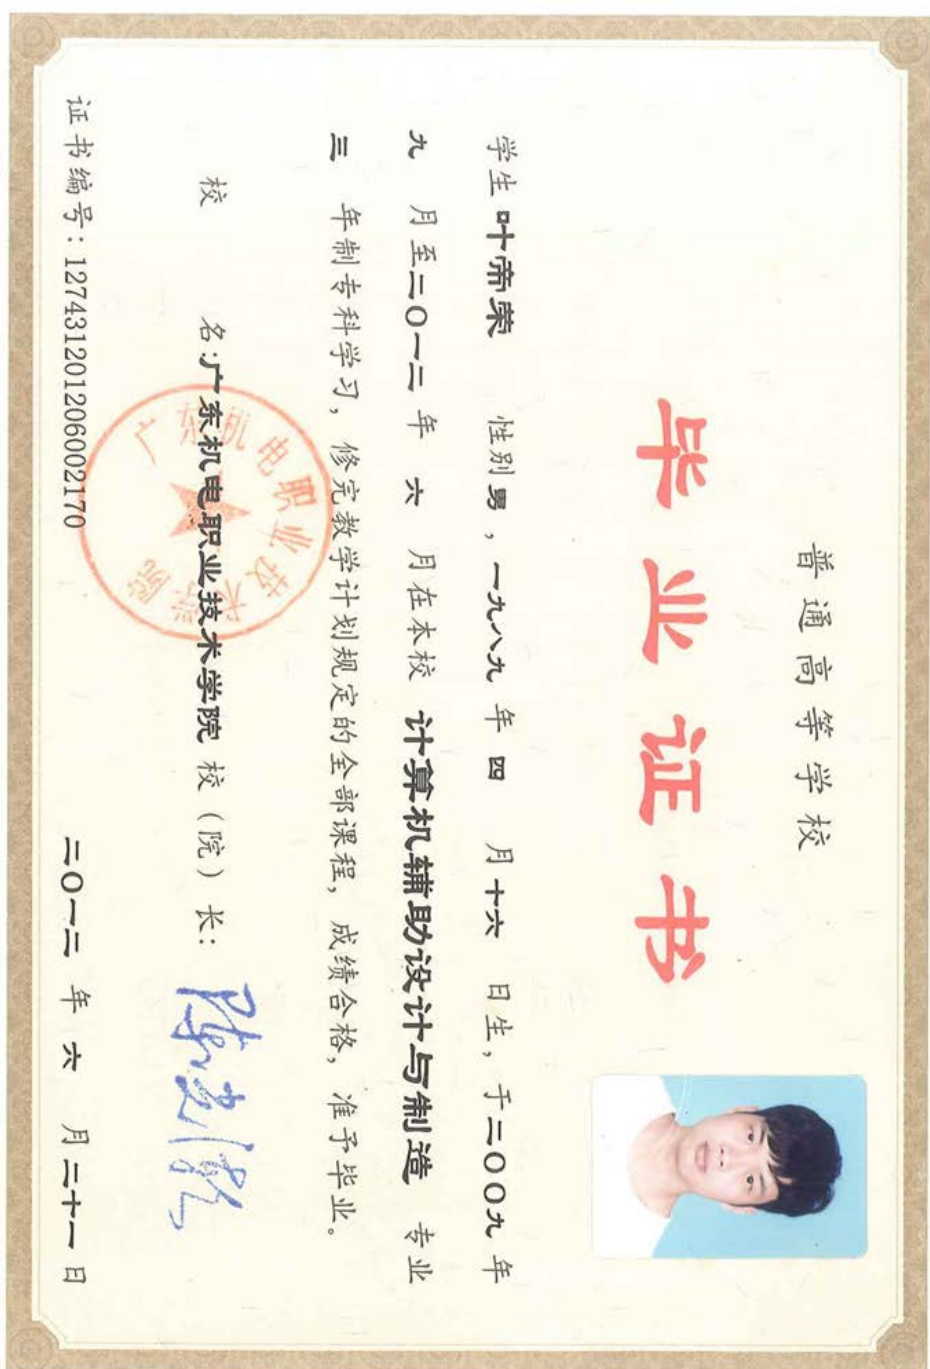 普通高等学校
毕业证书
学生 叶帝荣 性别 男，一九八九 年 四 月 十六 日生，于二〇〇九 年
九 月至二〇一二 年 六 月在本校 计算机辅助设计与制造 专业
三 年制专科学习，修完教学计划规定的全部课程，成绩合格，准予毕业。
校 名：广东机电职业技术学院 校（院）长：
广东机电职业技术学院
证书编号：127431201206002170 二〇一二 年 六 月二十一 日